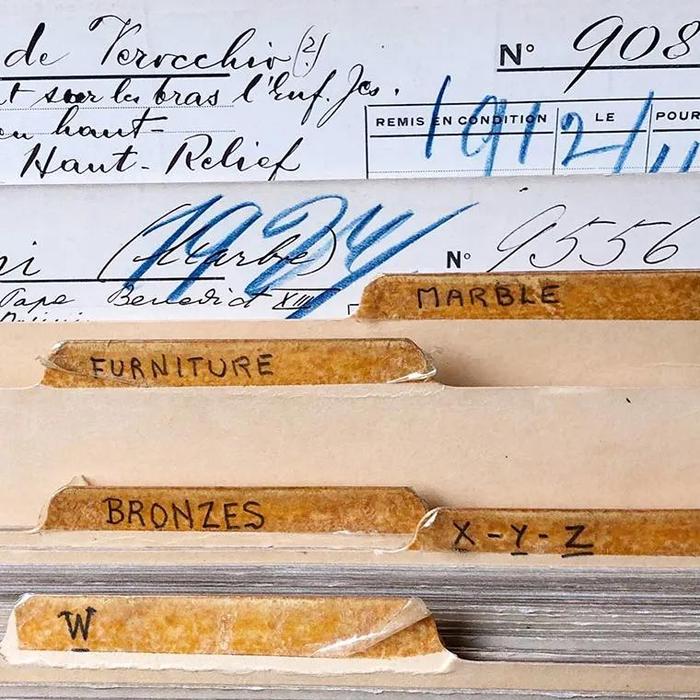 de Verocchio (2) N° 908
t sur les bras l'Enf. Jes.
en haut-
Haut-Relief
REMIS EN CONDITION LE POUR
1912/11
1924
ni (Marbre) N° 9556
Pape Benedict XIII
MARBLE
FURNITURE
BRONZES
X-Y-Z
W